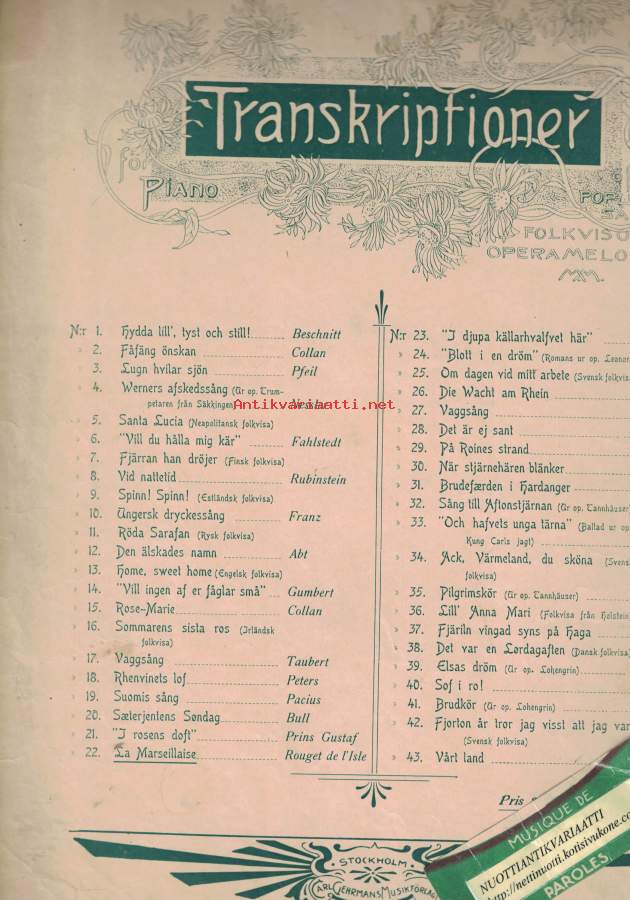 Transkriptioner
för
Piano
FOLKVISO
OPERAMELO
N:r 1. Hydda lill', tyst och still! Beschnitt
» 2. Fåfäng önskan Collan
» 3. Lugn hvilar sjön Pfeil
» 4. Werners afskedssång (Ur op. Trum-
petaren från Säkkingen)
Antikvariaatti.net
» 5. Santa Lucia (Neapolitansk folkvisa)
» 6. "Vill du hålla mig kär" Fahlstedt
» 7. Fjärran han dröjer (Finsk folkvisa)
» 8. Vid nattetid Rubinstein
» 9. Spinn! Spinn! (Estländsk folkvisa)
» 10. Ungersk dryckessång Franz
» 11. Röda Sarafan (Rysk folkvisa)
» 12. Den älskades namn Abt
» 13. Home, sweet home (Engelsk folkvisa)
» 14. "Vill ingen af er fåglar små" Gumbert
» 15. Rose-Marie Collan
» 16. Sommarens sista ros (Irländsk
folkvisa)
» 17. Vaggsång Taubert
» 18. Rhenvinets lof Peters
» 19. Suomis sång Pacius
» 20. Sæterjentens Søndag Bull
» 21. "I rosens doft" Prins Gustaf
» 22. La Marseillaise Rouget de l'Isle
N:r 23. "I djupa källarhvalfvet här"
» 24. "Blott i en dröm" (Romans ur op. Leonor
» 25. Om dagen vid mitt arbete (Svensk folkvis
» 26. Die Wacht am Rhein
» 27. Vaggsång
» 28. Det är ej sant
» 29. På Roines strand
» 30. När stjärnehären blänker
» 31. Brudefærden i Hardanger
» 32. Sång till Aftonstjärnan (Ur op. Tannhäuser
» 33. "Och hafvets unga tärna" (Ballad ur op
Kung Carls jagt)
» 34. Ack, Värmeland, du sköna (Svens
folkvisa)
» 35. Pilgrimskör (Ur op. Tannhäuser)
» 36. Lill' Anna Mari (Folkvisa från Holstein
» 37. Fjäriln vingad syns på Haga
» 38. Det var en Lørdagaften (Dansk folkvisa)
» 39. Elsas dröm (Ur op. Lohengrin)
» 40. Sof i ro!
» 41. Brudkör (Ur op. Lohengrin)
» 42. Fjorton år tror jag visst att jag var
(Svensk folkvisa)
» 43. Vårt land
Pris
STOCKHOLM
CARL GEHRMANS MUSIKFÖRLAG
MUSIQUE DE
NUOTTIANTIKVARIAATTI
http://nettinuotti.kotisivukone.co
PAROLES